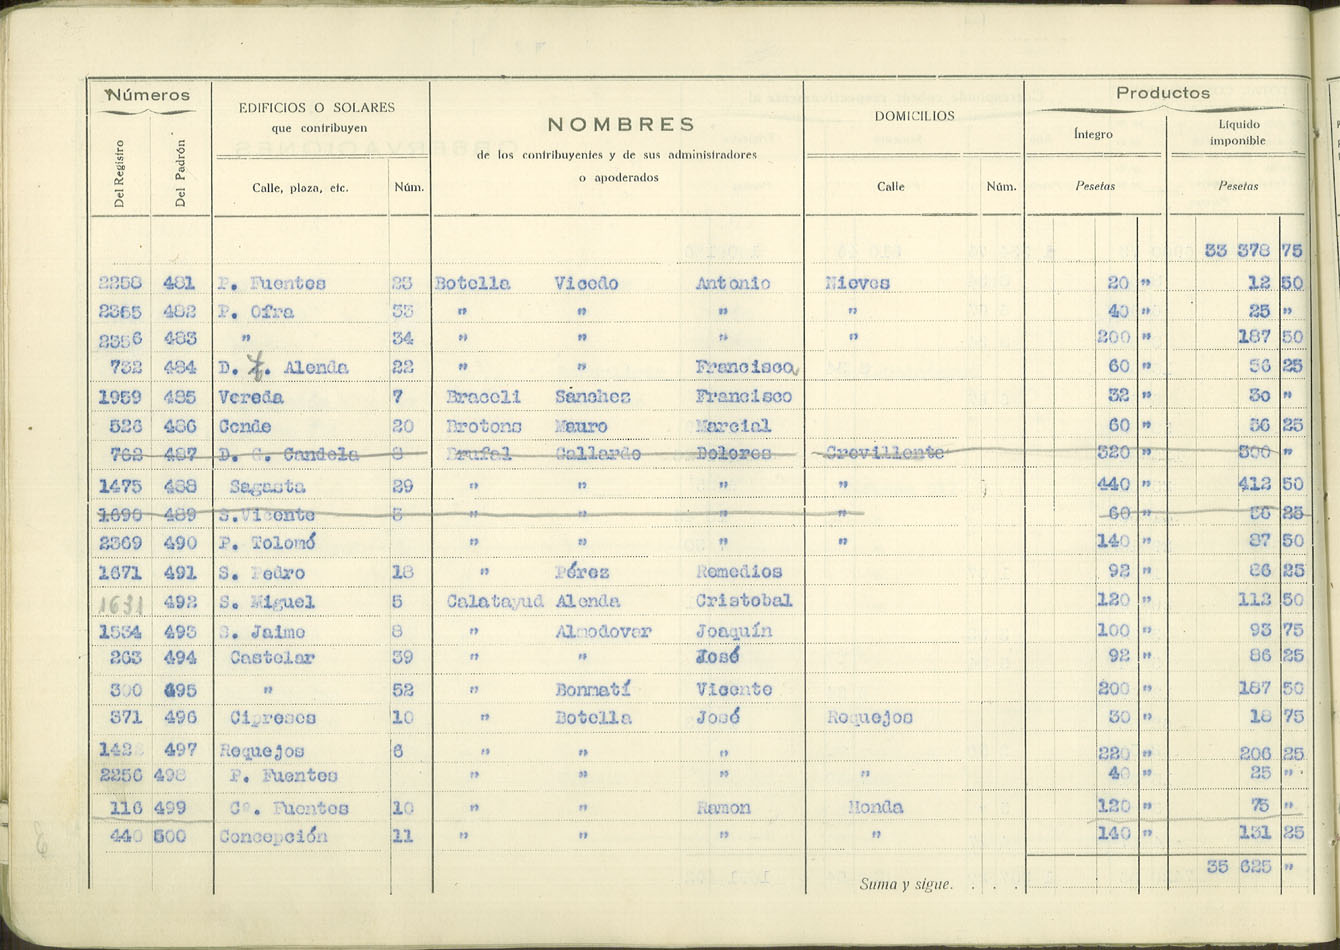 Números
EDIFICIOS O SOLARES
que contribuyen
NOMBRES
de los contribuyentes y de sus administradores
o apoderados
DOMICILIOS
Productos
Íntegro
Líquido
imponible
Del Registro
Del Padrón
Calle, plaza, etc.
Núm.
Calle
Núm.
Pesetas
Pesetas
33 378 75
2258 481 P. Fuentes 23 Botella Vicedo Antonio Nieves 20 " 12 50
2365 482 P. Ofra 33 " " " " 40 " 25 "
2366 483 " 34 " " " " 200 " 187 50
732 484 D. F. Alenda 22 " " Francisca 60 " 56 25
1959 485 Vereda 7 Braceli Sánchez Francisco 32 " 30 "
526 486 Conde 20 Brotons Mauro Marcial 60 " 56 25
762 487 D. C. Candela 8 Brufal Gallardo Dolores Crevillente 320 " 300 "
1475 488 Sagasta 29 " " " " 440 " 412 50
1690 489 S.Vicente 5 " " " " 60 " 56 25
2369 490 P. Tolomó " " " " 140 " 87 50
1671 491 S. Pedro 18 " Pérez Remedios 92 " 86 25
1631 492 S. Miguel 5 Calatayud Alenda Cristobal 120 " 112 50
1534 493 S. Jaime 8 " Almodovar Joaquín 100 " 93 75
263 494 Castelar 39 " " José 92 " 86 25
300 495 " 52 " Bonmatí Vicente 200 " 187 50
371 496 Cipreses 10 " Botella José Roquejos 30 " 18 75
497 Roquejos 6 " " " 220 " 206 25
2256 498 P. Fuentes " " " " 40 " 25 "
116 499 Cº. Fuentes 10 " " Ramon Honda 120 " 75 "
440 500 Concepción 11 " " " " 140 " 131 25
35 625 "
Suma y sigue. . . .